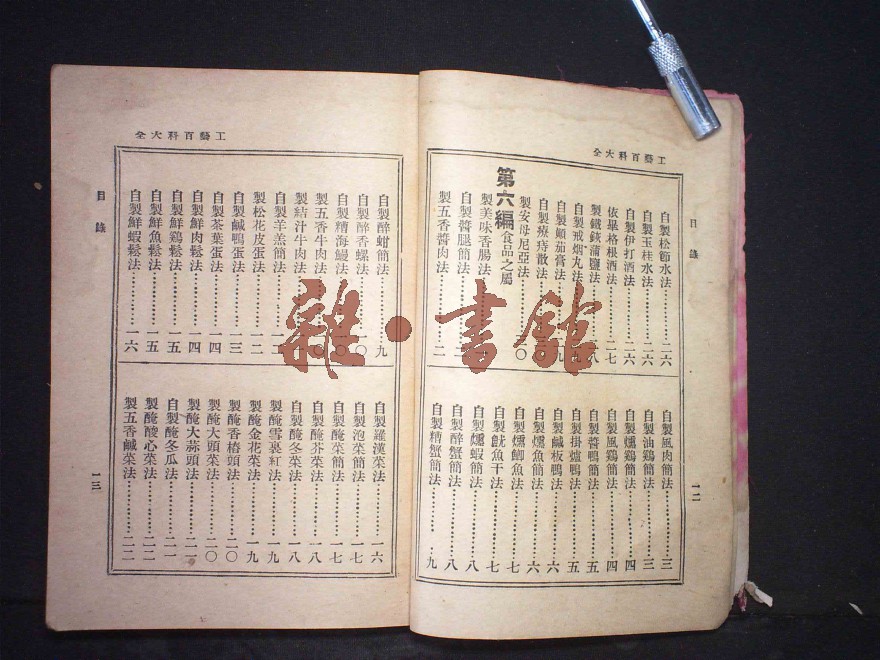 工藝百科大全
目錄
自製松節水法……二六
自製玉桂水法……二六
自製伊打酒法……二六
依畢格根酒法……二七
製鐵鋏蒲鹽法……八
自製戒烟丸法
自製顛茄膏法
自製痧痔散法
製安母尼亞法
第六編 食品之屬
製美味香腸法
自製醬腿簡法
製五香醬肉法……二
自製風肉簡法……三
自製油鷄簡法……三
自製燻鷄簡法……四
自製風鷄簡法……四
自製醬鴨簡法……五
自製掛爐鴨法……五
自製鹹板鴨法……六
自製燻魚簡法……六
自製燻鯽魚法……七
自製魷魚干法……七
自製燻蝦簡法……八
自製醉蟹簡法……八
自製糟蟹簡法……九
一二
工藝百科大全
目錄
自製醉蚶簡法……九
自製醉香螺法
自製糟海鰻法
製五香牛肉法
製結汁牛肉法
自製羊羔簡法
製松花皮蛋法……一二
自製鹹鴨蛋法……一三
自製茶葉蛋法……一四
自製鮮肉鬆法……一四
自製鮮鷄鬆法……一五
自製鮮魚鬆法……一五
自製鮮蝦鬆法……一六
自製羅漢菜法……一六
自製泡菜簡法……一七
製醃菜簡法……一七
製醃芥菜法……一八
自製醃冬菜法……一八
製醃雪裏紅法……一九
製醃金花菜法……一九
製醃香椿頭法……二〇
製醃大頭菜法……二〇
製醃大蒜頭法……二一
自製醃冬瓜法……二一
製醃酸心菜法……二二
製五香鹹菜法……二二
一三
雜·書館